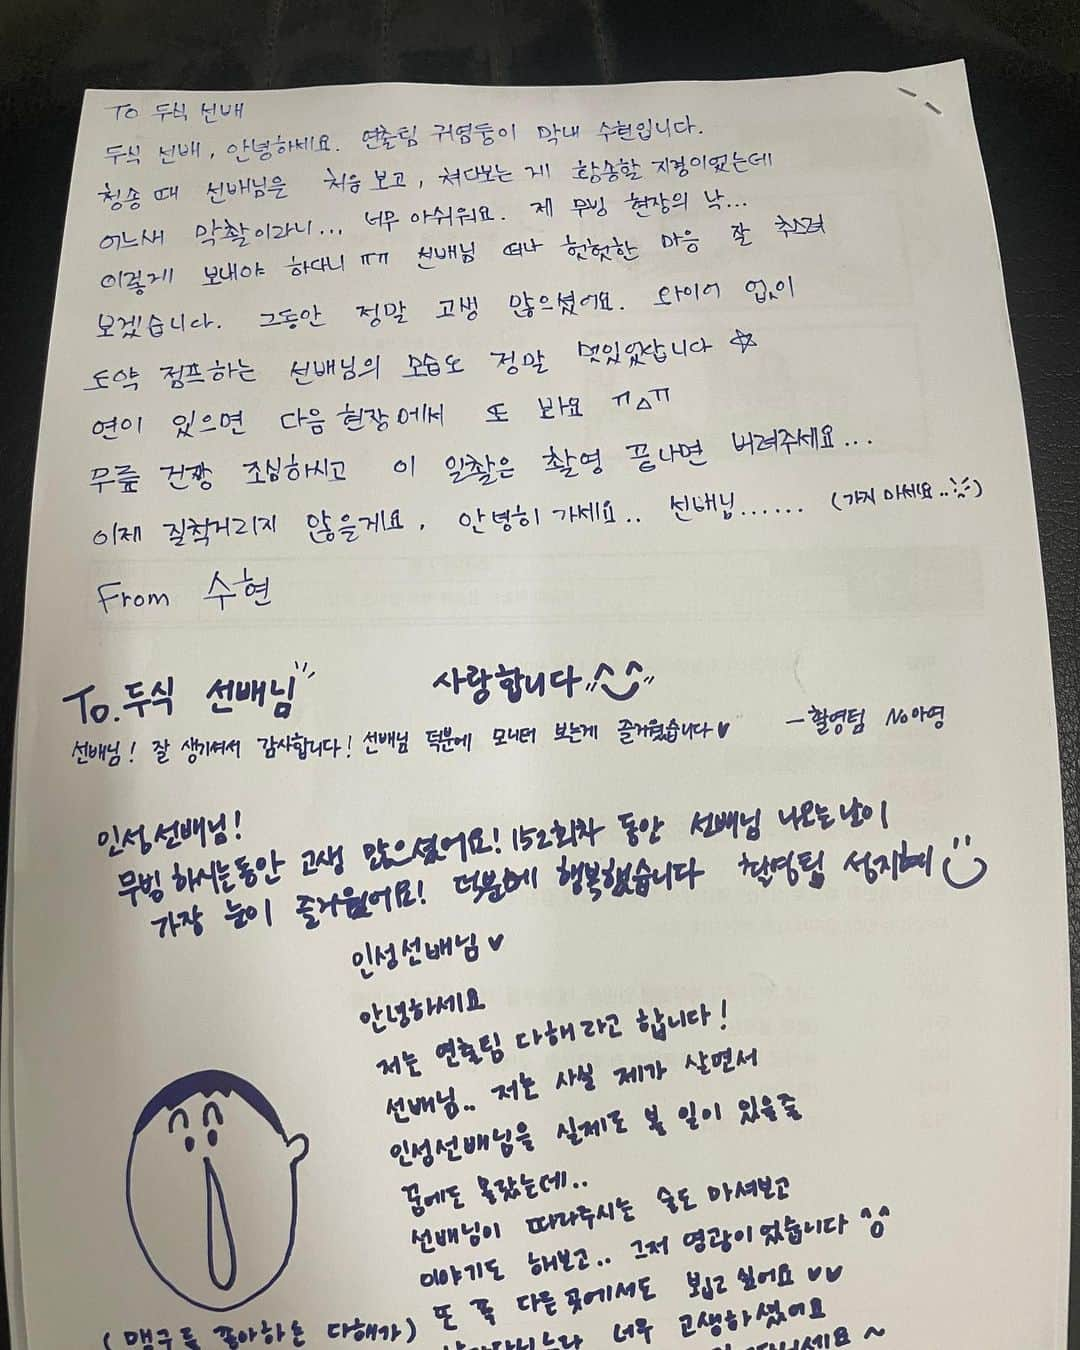 To 두식 선배
두식 선배, 안녕하세요. 연출팀 귀염둥이 막내 수현입니다.
청송 때 선배님을 처음 보고, 쳐다보는 게 황송할 지경이었는데
어느새 막촬이라니... 너무 아쉬워요. 제 무빙 현장의 낙...
이렇게 보내야 하다니 ㅠㅠ 선배님 떠나 헛헛한 마음 잘 추스려
보겠습니다. 그동안 정말 고생 많으셨어요. 와이어 없이
도약 점프하는 선배님의 모습도 정말 멋있었답니다 ☆
연이 있으면 다음 현장에서 또 봐요 ㅠ△ㅠ
무릎 건강 조심하시고 이 일촬은 촬영 끝나면 버려주세요...
이제 질척거리지 않을게요, 안녕히 가세요.. 선배님...... (가지 마세요..)
From 수현
To. 두식 선배님 사랑합니다
선배님! 잘 생기셔서 감사합니다! 선배님 덕분에 모니터 보는게 즐거웠습니다♥ - 촬영팀 No아영
인성선배님!
무빙 하시는동안 고생 많으셨어요! 152회차 동안 선배님 나오는날이
가장 눈이 즐거웠어요! 덕분에 행복했습니다 촬영팀 성지혜
인성선배님♥
안녕하세요
저는 연출팀 다해라고 합니다!
선배님.. 저는 사실 제가 살면서
인성선배님을 실제로 볼 일이 있을줄
꿈에도 몰랐는데..
선배님이 따라주시는 술도 마셔보고
이야기도 해보고.. 그저 영광이었습니다 ^^
또 꼭 다른곳에서도 뵙고 싶어요 ♥♥
(맹구를 좋아하는 다해가)
너무 고생하셨어요